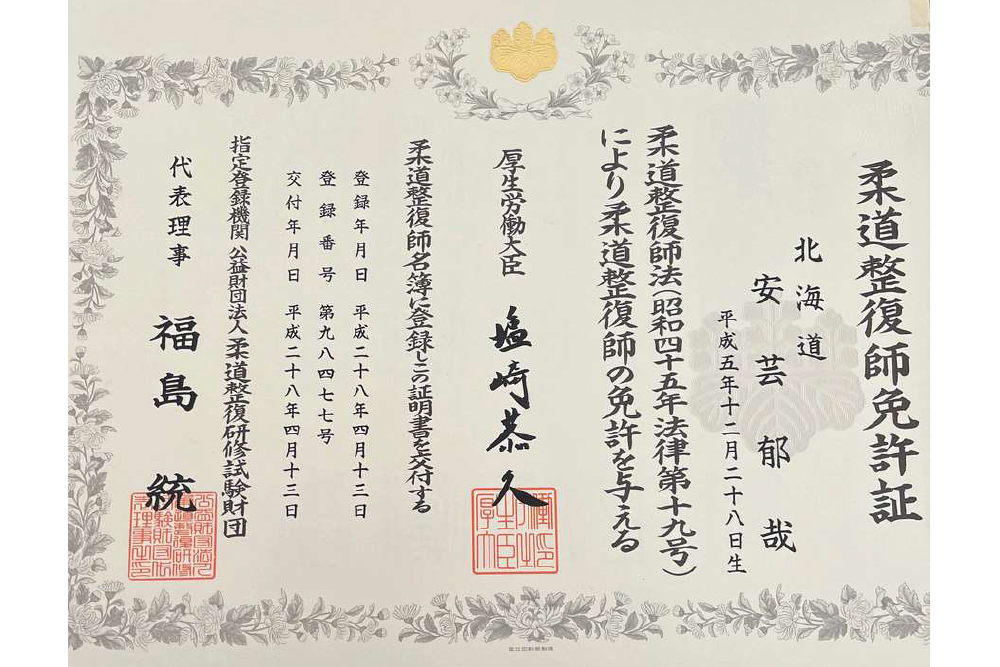 柔道整復師免許証
北海道
安芸郁哉
平成五年十二月二十八日生
柔道整復師法(昭和四十五年法律第十九号)
により柔道整復師の免許を与える
厚生労働大臣 塩崎恭久
柔道整復師名簿に登録しこの証明書を交付する
登録年月日 平成二十八年四月十三日
登録番号 第九八四七七号
交付年月日 平成二十八年四月十三日
指定登録機関 公益財団法人柔道整復研修試験財団
代表理事 福島統